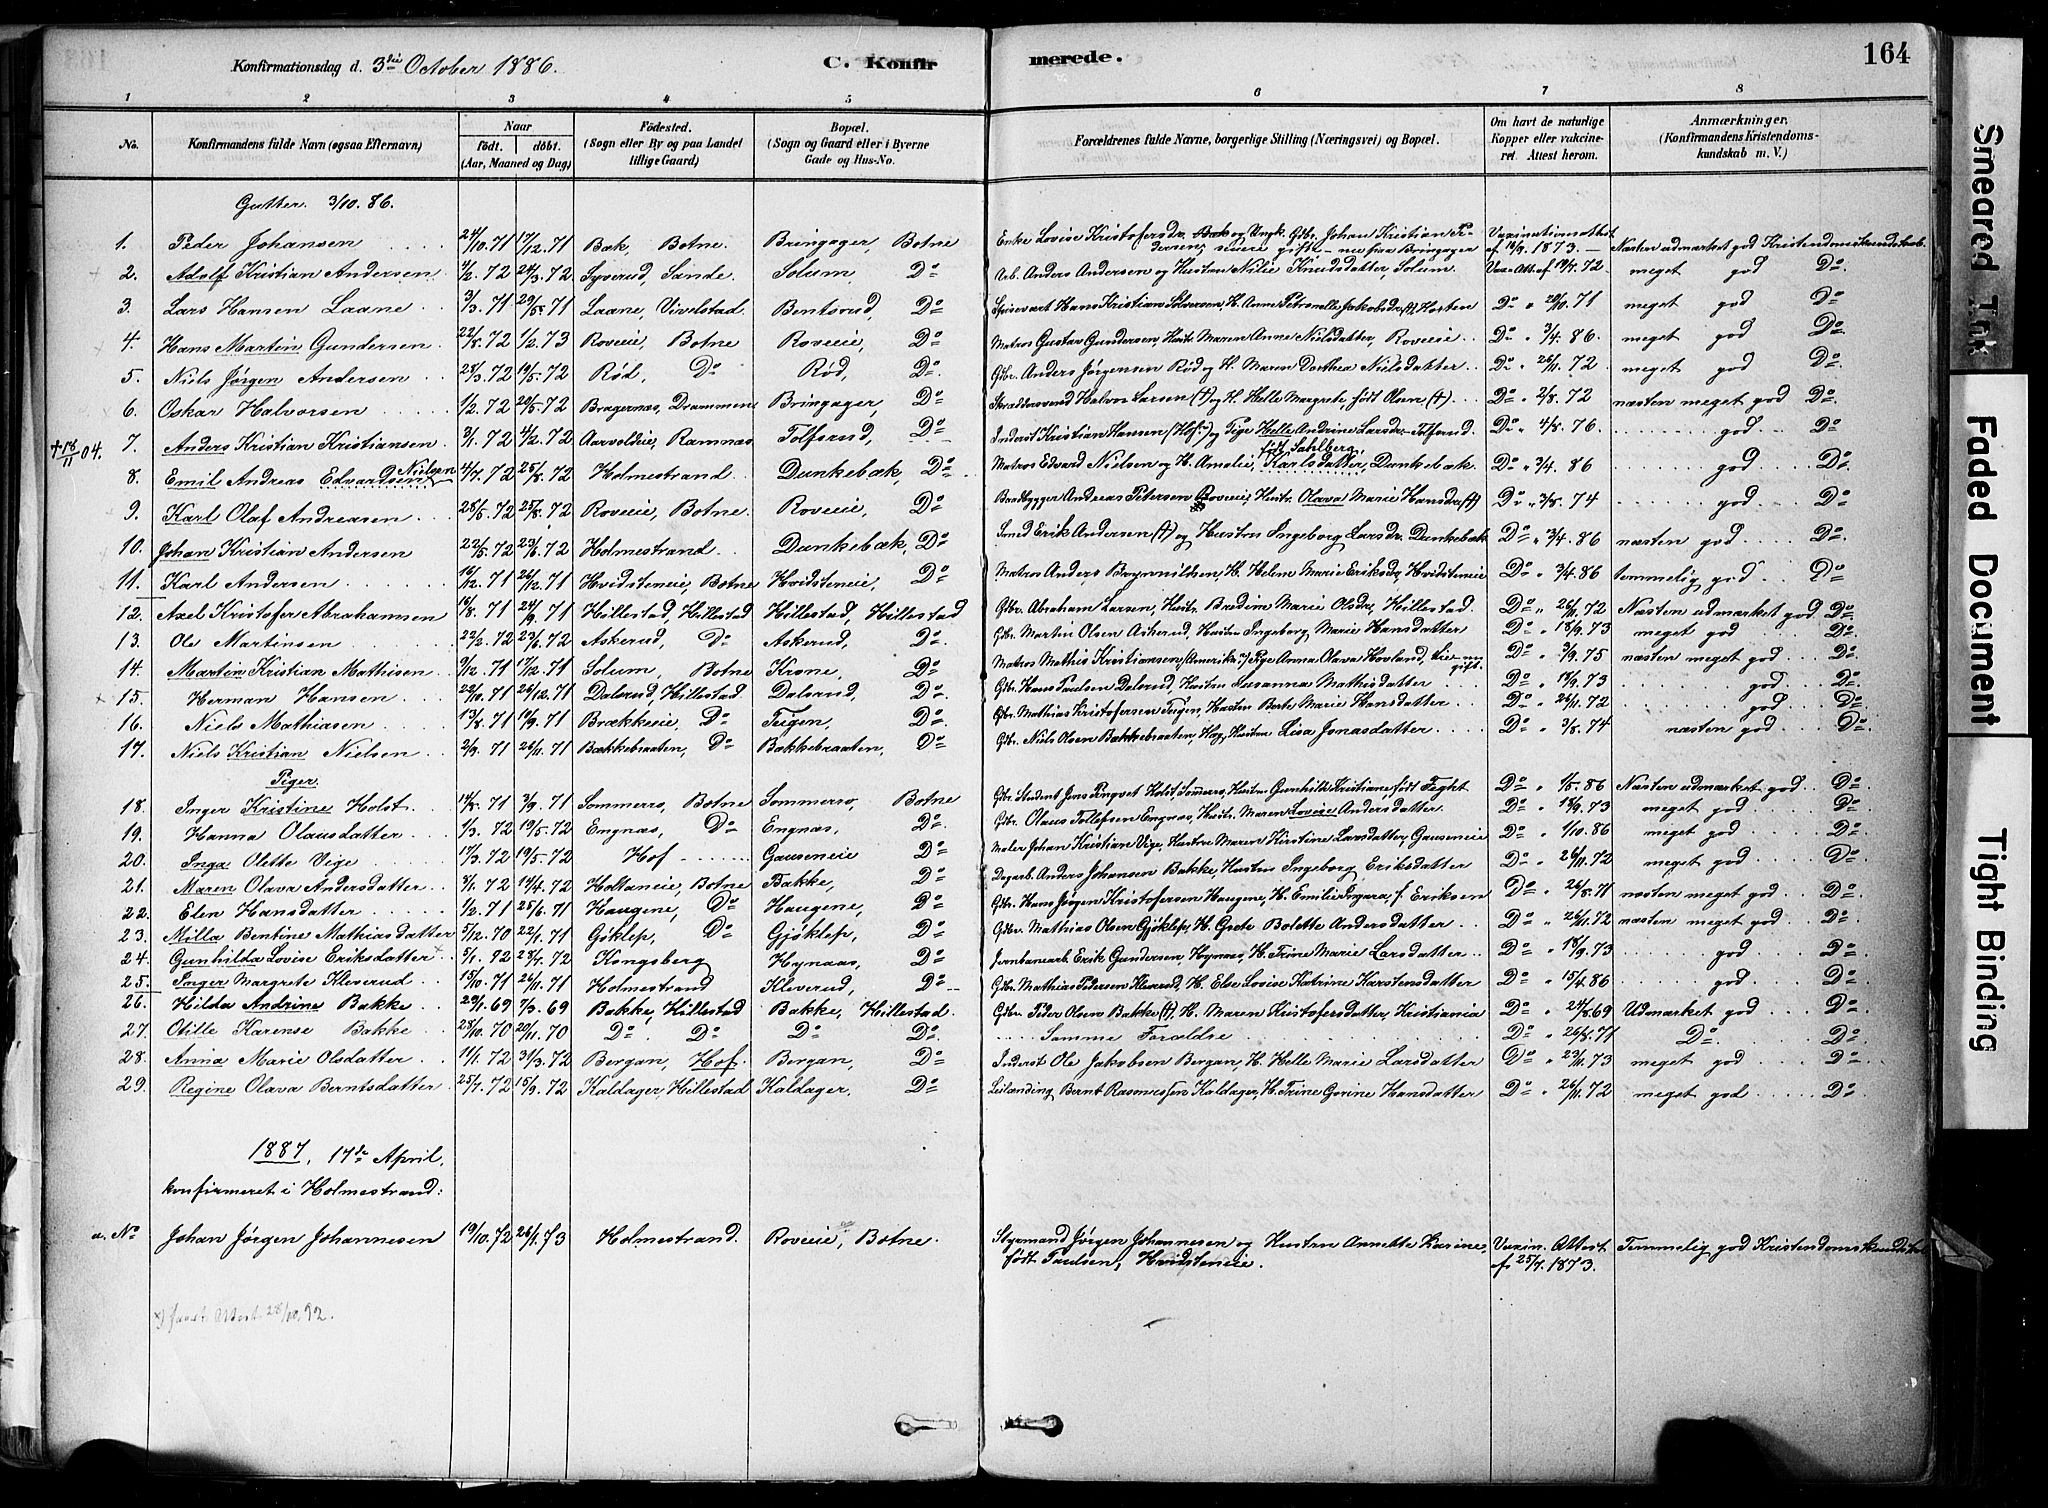 164
Konfirmationsdag d. 3die October 1886. C. Konfirmerede.
1 2 3 4 5 6 7 8
No. Konfirmandens fulde Navn (ogsaa Efternavn) Naar födt. döbt. (Aar, Maaned og Dag) Födested. (Sogn eller By og paa Landet tillige Gaard) Bopæl. (Sogn og Gaard eller i Byerne Gade og Hus-No. Forældrenes fulde Navne, borgerlige Stilling (Næringsvei) og Bopæl. Om havt de naturlige Kopper eller vakcineret Attest herom. Anmærkninger. (Konfirmandens Kristendomskundskab m. V.)
Gutter. 3/10. 86.
1. Peder Johansen 24/10. 71 17/12. 71 Bæk, Botne. Bringager, Botne Enke Lovise Kristofersdr. Bæk og Ungk. Gbr. Johan Kristian Vaxinationsattest af 14/9. 1873. Næsten udmærket god Kristendomskundskab.
2. Adolf Kristian Andersen 4/2. 72 24/3. 72 Syverud, Sande. Solum, Do Arb. Anders Andersen og Hustru Nilie Knudsdatter, Solum. Vax. Att. af 19/7. 72 meget god Do
3. Lars Hansen Laane 3/3. 71 29/5. 71 Laane, Vivelstad. Bentsrud, Do Hans Kristian Solversen, H. Anne Petronelle Jakobsdr (†) Horten Do " 20/10. 71 meget god Do
4. Hans Martin Gundersen 22/8. 72 1/2. 73 Roveie, Botne Roveie, Do Matros Gustav Gundersen, Hustr. Maren Anne Nielsdatter, Roveie Do " 3/4. 86. meget god Do
5. Niels Jørgen Andersen 28/3. 72 19/5. 72 Rød, Do Rød, Do Gbr. Anders Jørgensen Rød og H. Maren Dorthea Nielsdatter Do " 26/11. 72 meget god Do
6. Oskar Halvorsen 1/2. 72 20/5. 72 Bragernæs, Drammen Bringager, Do Skræddersvend Halvor Larsen (†) og H. Helle Margrete, født Olsen (†) Do " 2/8. 72 næsten meget god Do
† 18/11 04. 7. Anders Kristian Kristiansen 3/1. 72 4/2. 72 Aarvoldeie, Ramnæs Tolfsrud, Do Inderst Kristian Hansen (Hof) og Pige Helle Andrine Larsdr. Tolfsrud Do " 4/8. 76. god Do
8. Emil Andreas Edvardsen Nielsen 4/7. 72 25/8. 72 Holmestrand. Dunkebæk, Do Matros Edvard Nielsen og H. Amalie, Karlsdatter, født Sahlberg, Dunkebæk. Do " 3/4. 86 god Do
9. Karl Olaf Andreasen 28/5. 72 25/8. 72 Roveie, Botne. Roveie, Do Baadbygger Andreas Petersen Roveie, Hustr. Olava Marie Hansdr (†) Do " 3/8. 74 god Do
10. Johan Kristian Andersen 22/5. 72 23/6. 72 Holmestrand Dunkebæk, Do Smed Erik Andersen (†) og Hustru Ingeborg Larsdr. Dunkebæk Do " 3/4. 86 næsten god Do
11. Karl Andersen 16/12. 71 26/12. 71 Hvidsteneie, Botne Hvidsteneie, Do Matros Anders Brynnildsen, H. Helene Marie Eriksdr, Hvidsteneie Do " 3/4. 86 temmelig god Do
12. Axel Kristofer Abrahamsen 16/8. 71 24/9. 71 Hillestad, Hillestad Hillestad, Hillestad Gbr. Abraham Larsen, Hustr. Bredine Marie Olsdr, Hillestad. Do " 26/11. 72 Næsten udmærket god Do
13. Ole Martinsen 22/2. 72 23/6. 72 Askerud, Do Askerud, Do Gbr. Martin Olsen Askerud, Hustru Ingeborg Marie Hansdatter Do " 18/9. 73 meget god Do
14. Martin Kristian Mathisen 9/12. 71 17/12. 71 Solum, Botne Krone, Do Matros Mathis Kristiansen (Amerika) Pige Anna Olava Hovland, gift. Do " 3/9. 75 næsten meget god Do
15. Herman Hansen 22/10. 71 26/12. 71 Dalsrud, Hillestad Dalsrud, Do Gbr. Hans Paulsen Dalsrud, Hustru Susanna Mathisdatter Do " 18/9. 73 god Do
16. Niels Mathiasen 13/8. 71 10/9. 71 Brækkeeie, Do Teigen, Do Gbr. Mathias Kristofersen Teigen, Hustru Berte Marie Hansdatter Do " 26/11. 72 god Do
17. Niels Kristian Nielsen 2/9. 71 26/11. 71 Bækkebraaten, Do Bakkebraaten, Do Gbr. Niels Olsen Bakkebraaten, Hustru Lisa Jonasdatter Do " 3/8. 74 næsten god Do
Piger.
18. Inger Kristine Holst 14/8. 71 3/9. 71 Sommerro, Botne Sommerro, Botne Gbr. Student Jens Ringvet Holst, Sommerro, Hustru Gunhilde Kristiane født Feght Do " 1/5. 86 Næsten udmærket god Do
19. Hanna Olausdatter 1/3. 72 19/5. 72 Engnæs, Do Engnæs, Do Gbr. Olaus Tollefsen Engnæs, Hustr. Maren Lovise Andersdatter Do " 18/9. 73 meget god Do
20. Inga Olette Vige 17/3. 72 19/5. 72 Hof Gauseneie Do Maler Johan Kristian Vige, Hustru Maren Kristine Larsdatter, Gauseneie Do " 1/10. 86 meget god Do
21. Maren Olava Andersdatter 8/1. 72 14/4. 72 Holtaneie, Botne Bakke, Do Dagarb. Anders Johansen Bakke, Hustru Ingeborg Eriksdatter Do " 26/11. 72 meget god Do
22. Elen Hansdatter 1/2. 71 25/6. 71 Haugene, Do Haugene, Do Gbr. Hans Jørgen Kristofersen Haugene, H. Emilie Ingara, f. Eriksen Do " 26/8. 71 næsten meget god Do
23. Milla Bentine Mathiasdatter 5/12. 70 22/1. 71 Gjøklep, Do Gjøklep, Do Gbr. Mathias Olsen Gjøklep, H. Grete Bolette Andersdatter Do " 26/11. 72 næsten meget god Do
24. Gunhilda Lovise Eriksdatter 5/1. 72 28/4. 72 Kongsberg Hynaas, Do Jernbanearb. Erik Gundersen, Hynaas, H. Trine Marie Larsdatter Do " 18/9. 73 god Do
25. Inger Margrete Kleverud 15/10. 71 26/11. 71 Holmestrand Kleverud, Do Gbr. Mathias Petersen Kleverud, H. Else Lovise Katrine Karstensdatter Do " 15/4. 86 god Do
26. Hilda Andrine Bakke 29/1. 69 7/3. 69 Bakke, Hillestad Bakke, Hillestad. Gbr. Peder Olsen Bakke (†), H. Maren Kristofersdatter, Kristiania Do " 24/8. 69 Udmærket god Do
27. Otilie Karense Bakke 28/10. 70 20/11. 70 Do Do Do Do Samme Forældre Do " 26/8. 71 Do Do
28. Anna Marie Olsdatter 11/1. 72 31/3. 72 Bergan, Hof. Bergan, Do Inderst Ole Jakobsen Bergan, H. Helle Marie Larsdatter Do " 23/11. 73 meget god Do
29. Regine Olava Berntsdatter 25/7. 72 15/9. 72 Kaldager, Hillestad Kaldager, Do Leilænding Bernt Rasmussen Kaldager, H. Trine Gorine Hansdatter Do " 26/11. 72 meget god Do
1887, 17de April,
konfirmeret i Holmestrand:
u. No Johan Jørgen Johannesen 19/10. 72 26/1. 73 Holmestrand. Roveie, Botne. Styrmand Jørgen Johannesen og Hustru Annette Karine, Vaxin. Attest Temmelig god Kristendomskundskab
født Paulsen, Hvidsteneie. af 25/7. 1873.
x) Attest 28/10. 92.
Smeared Ink
Faded Document
Tight Binding